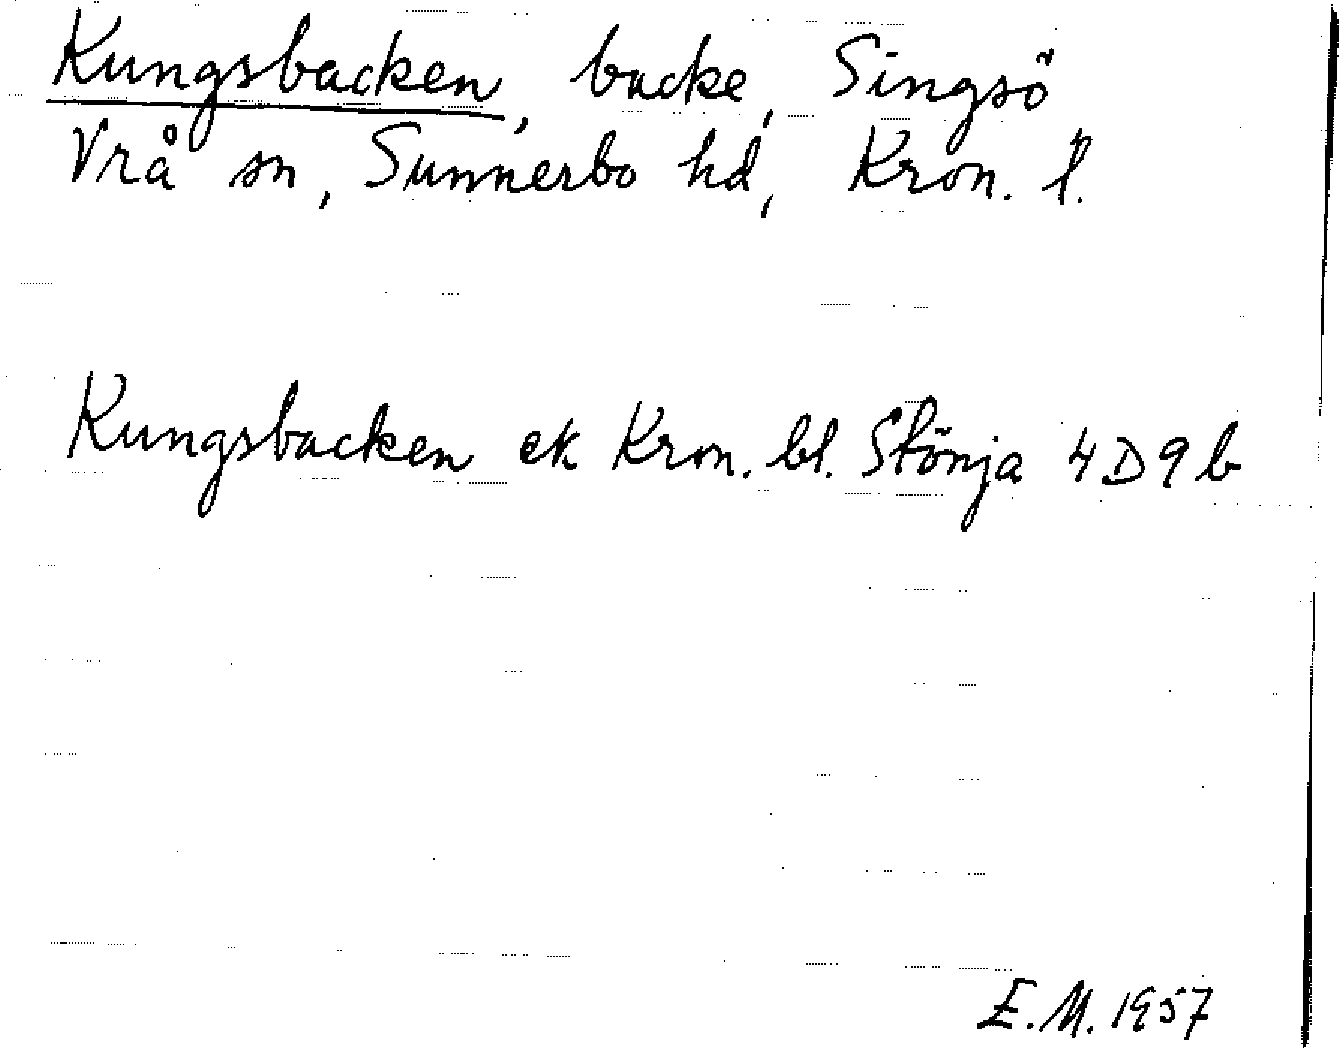 Kungsbacken, backe, Singsö
Vrå sn, Sunnerbo hd, Kron. l.
Kungsbacken ek Kron. bl. Stönja 4D9b
E.M. 1957